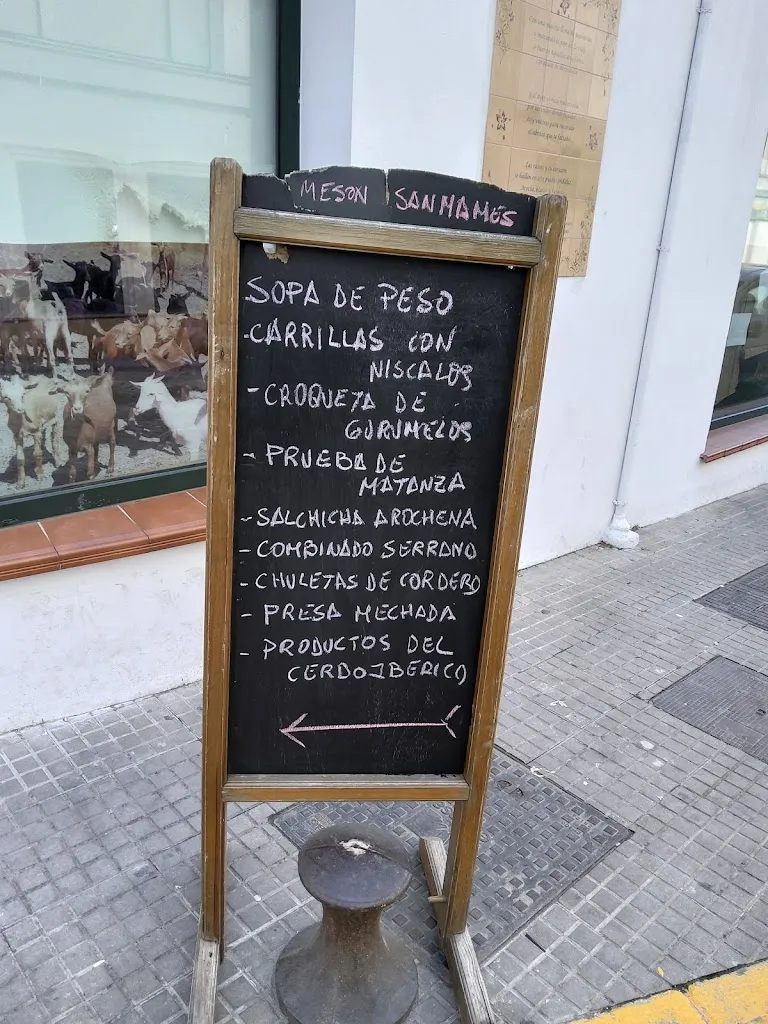 MESON SANMAMES
SOPA DE PESO
-CARRILLAS CON
NISCALOS
-CROQUETA DE
GURUMELOS
-PRUEBA DE
MATANZA
-SALCHICHA AROCHENA
-COMBINADO SERRANO
-CHULETAS DE CORDERO
-PRESA MECHADA
-PRODUCTOS DEL
CERDO IBERICO